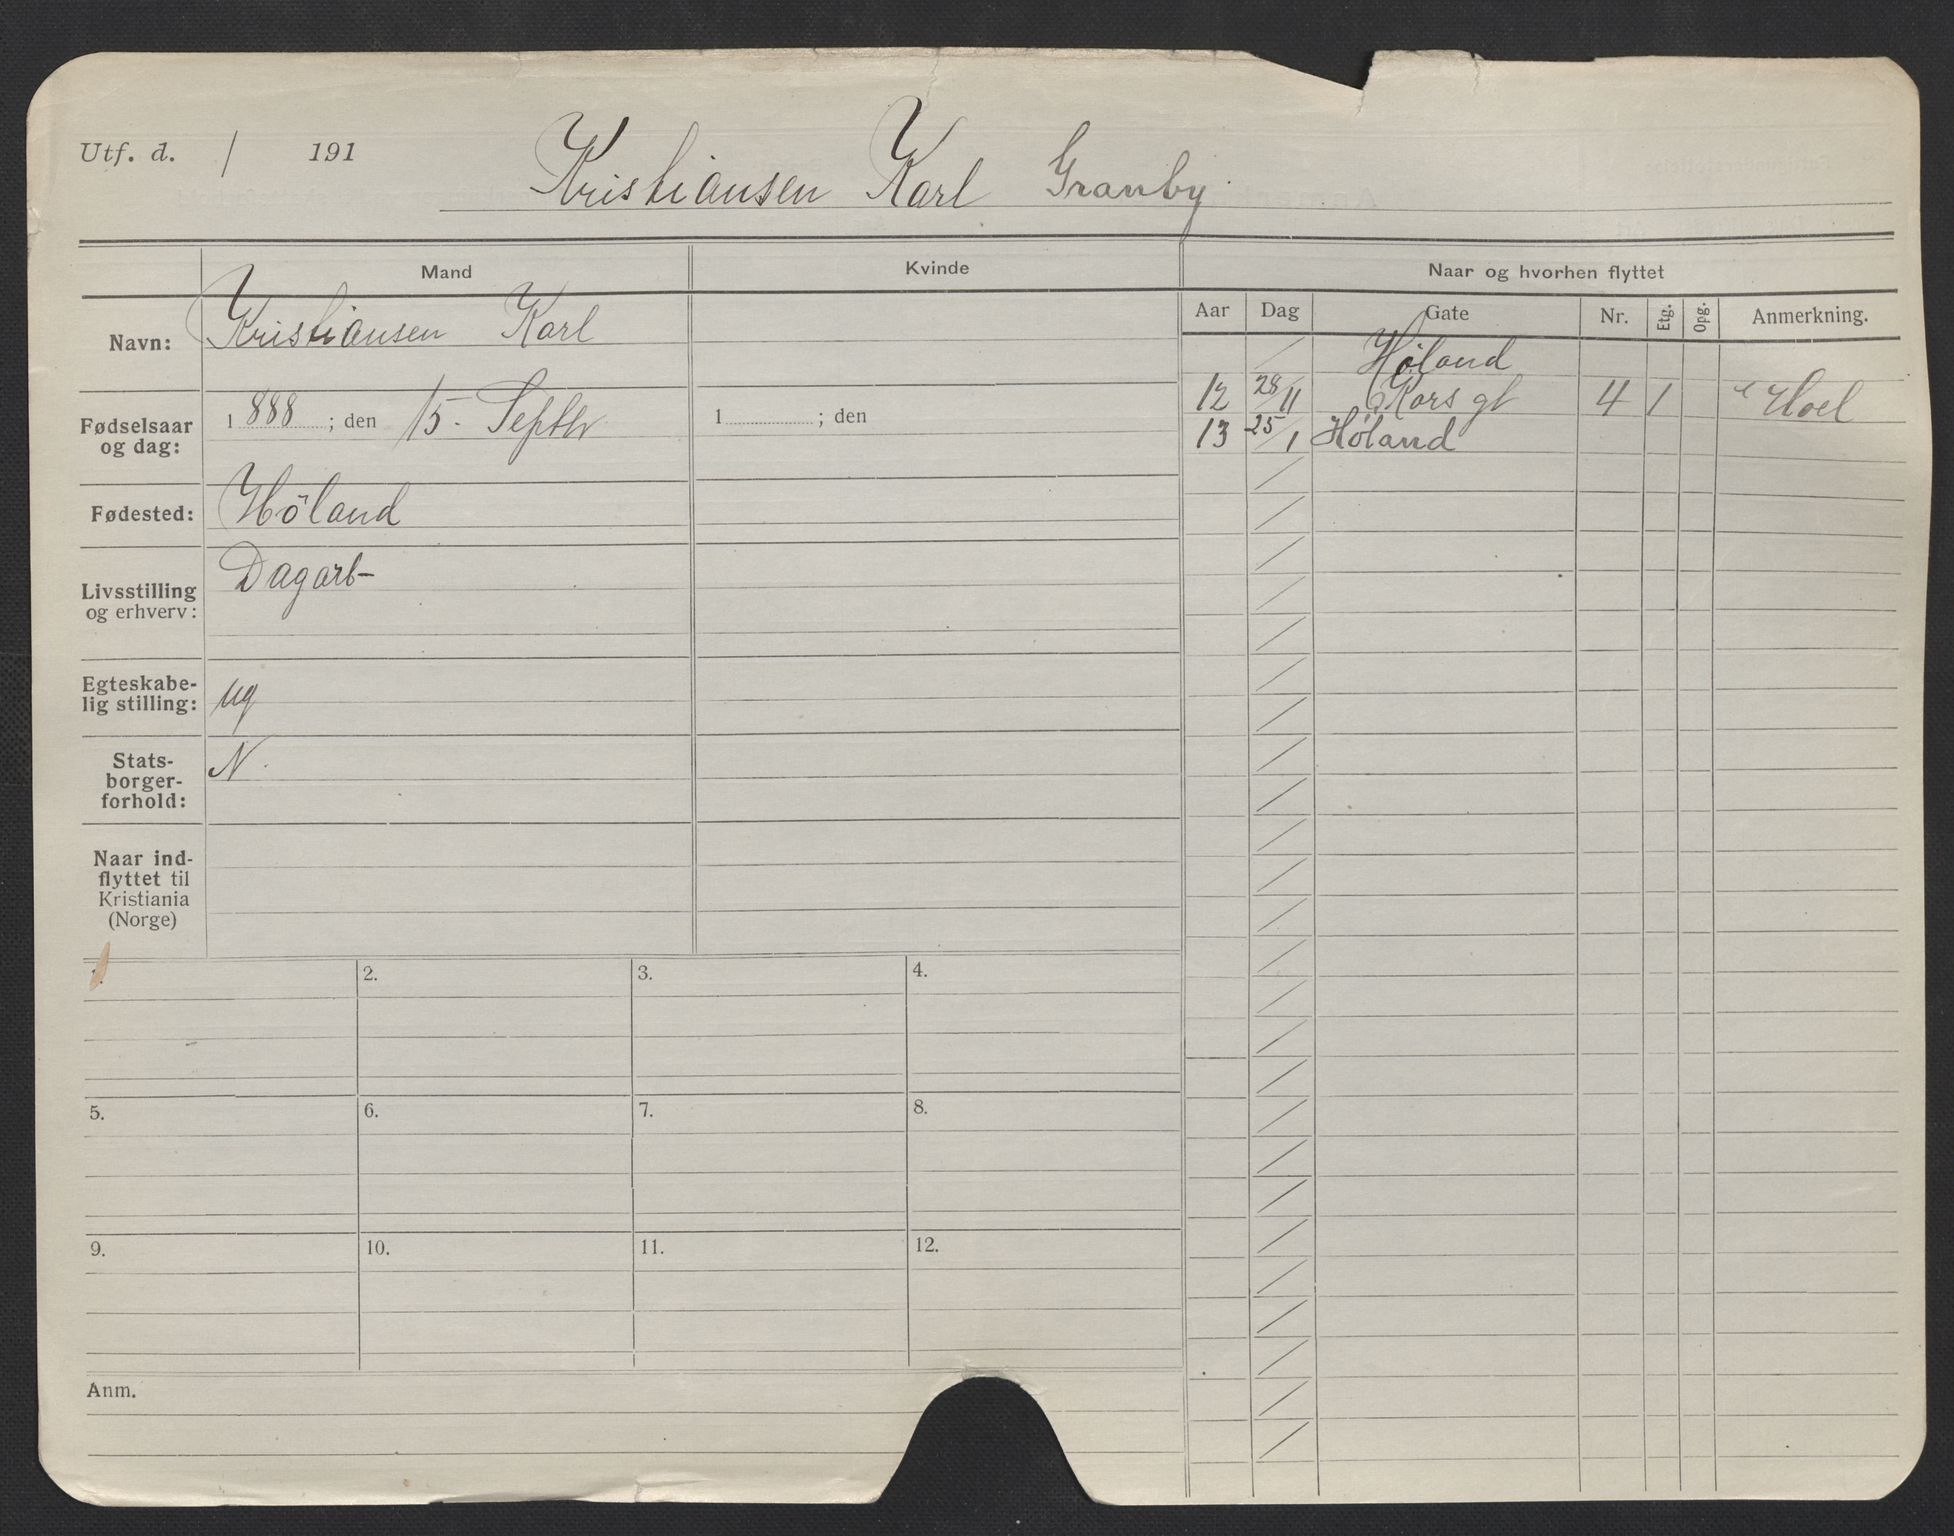 Utf. d. / 191
Kristiansen Karl Granby
Mand
Kvinde
Naar og hvorhen flyttet
Aar Dag Gate Nr. Etg. Opg. Anmerkning.
Navn: Kristiansen Karl
Fødselsaar og dag: 1 888 ; den 15. Septbr 1 ; den
Fødested: Höland
Livsstilling og erhverv: Dagarb-
Egteskabe-
lig stilling: ug
Stats-
borger-
forhold: N.
Naar ind-
flyttet til
Kristiania
(Norge)
/ Høland
12 28/11 Kors gt 4 1 Hoel
13 25/1 Høland
1. 2. 3. 4.
5. 6. 7. 8.
9. 10. 11. 12.
Anm.